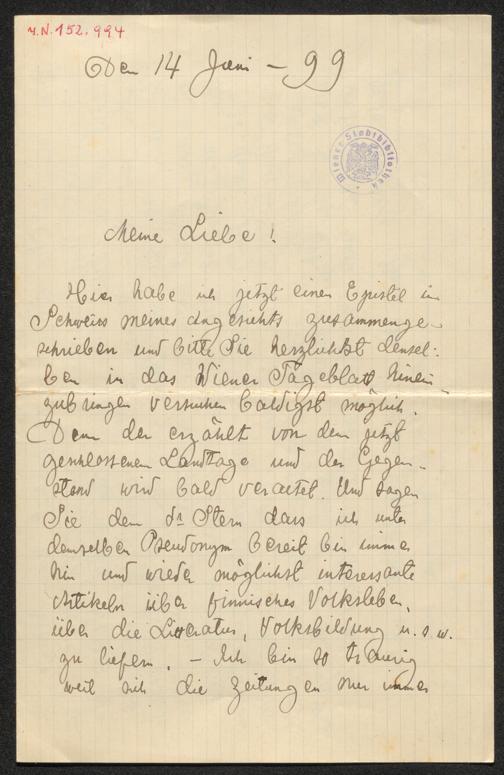 J.N. 152.994
Den 14 Juni - 99
Wiener Stadtbibliothek
Meine Liebe!
Hier habe ich jetzt einen Epistel im
Schweiss meines Angesichts zusammenge-
schrieben und bitte Sie herzlichst densel-
ben in das Wiener Tageblatt hinein-
zubringen versuchen baldigst möglich.
Denn der erzählt von dem jetzt
geschlossenen Landtage und der Gegen-
stand wird bald veraltet. Und sagen
Sie dem dr Stern dass ich unter
demselben Pseudonym bereit bin immer
hin und wieder möglichst interessante
Artikeln über finnisches Volksleben,
über die Literatur, Volksbildung u.s.w.
zu liefern. - Ich bin so traurig
weil sich die Zeitungen nur immer